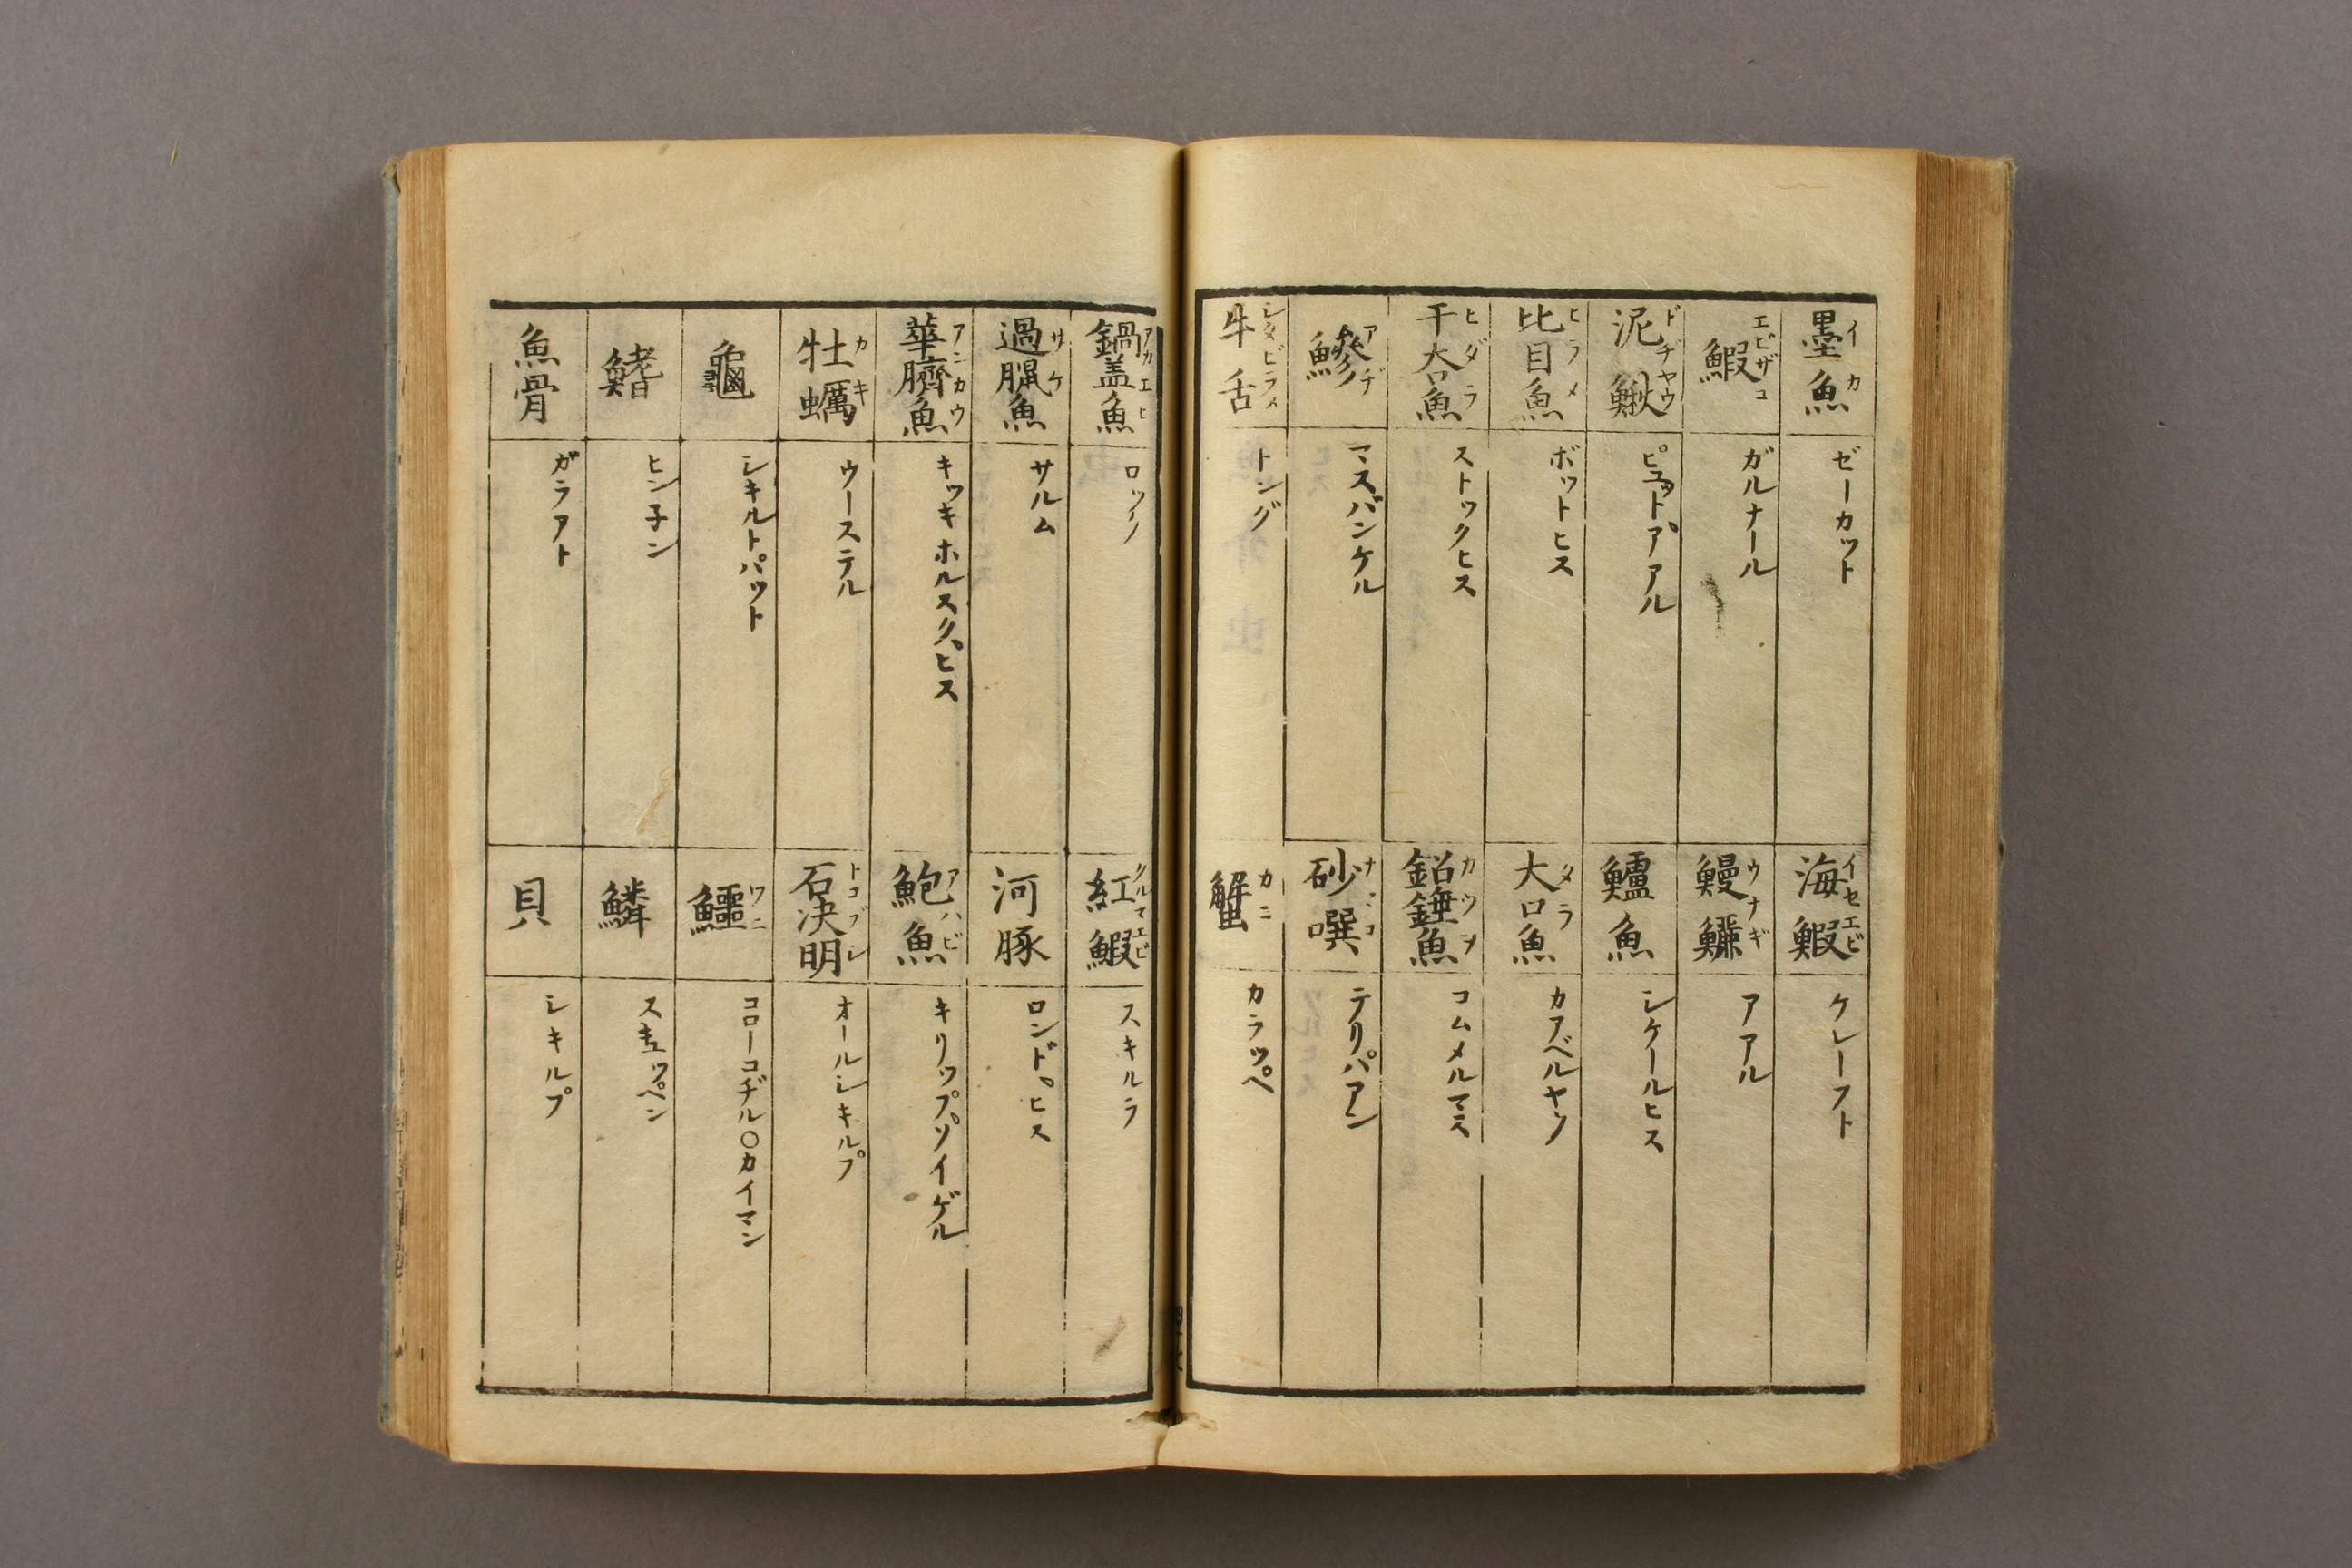 墨魚 イカ ゼーカット
海鰕 イセエビ ケレーフト
鰕 エビザコ ガルナール
鰻鱺 ウナギ アアル
泥鰍 ドヂヤウ ピュットアアル
鱸魚 シケールヒス
比目魚 ヒラメ ボットヒス
大口魚 タラ カアベルヤウ
干呑魚 ヒダラ ストックヒス
鉊錘魚 カツヲ コムメルマス
鰺 アヂ マスバンケル
砂噀 ナマコ テリパアン
牛舌 シタビラメ トング
蟹 カニ カラッペ
鍋盖魚 アカエヒ ロッノ
紅鰕 クルマエビ スキルラ
過臘魚 サケ サルム
河豚 ロンドヒス
華臍魚 アンカウ キッキホルスクヒス
鮑魚 アハビ キリップソイゲル
牡蠣 カキ ウーステル
石決明 トコブシ オールシキルプ
龜 シキルトパット
鱷 ワニ コローコヂル○カイマン
鰭 ヒン子ン
鱗 スキュッペン
魚骨 ガラアト
貝 シキルプ